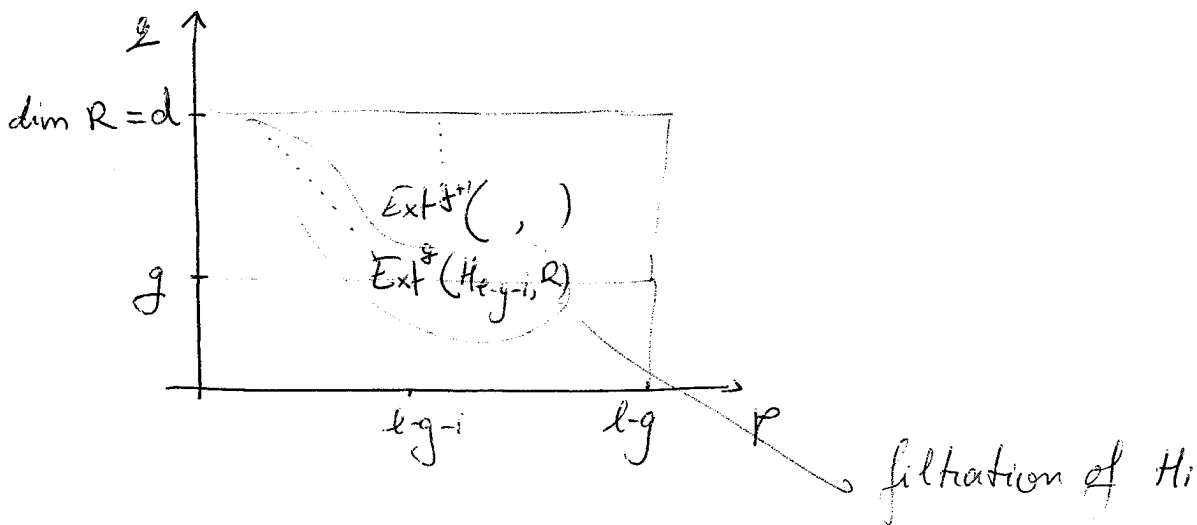 q
dim R = d
Ext^{g+1}( , )
g
Ext^g(H_{l-g-i}, R)
l-g-i
l-g
p
filtration of Hi